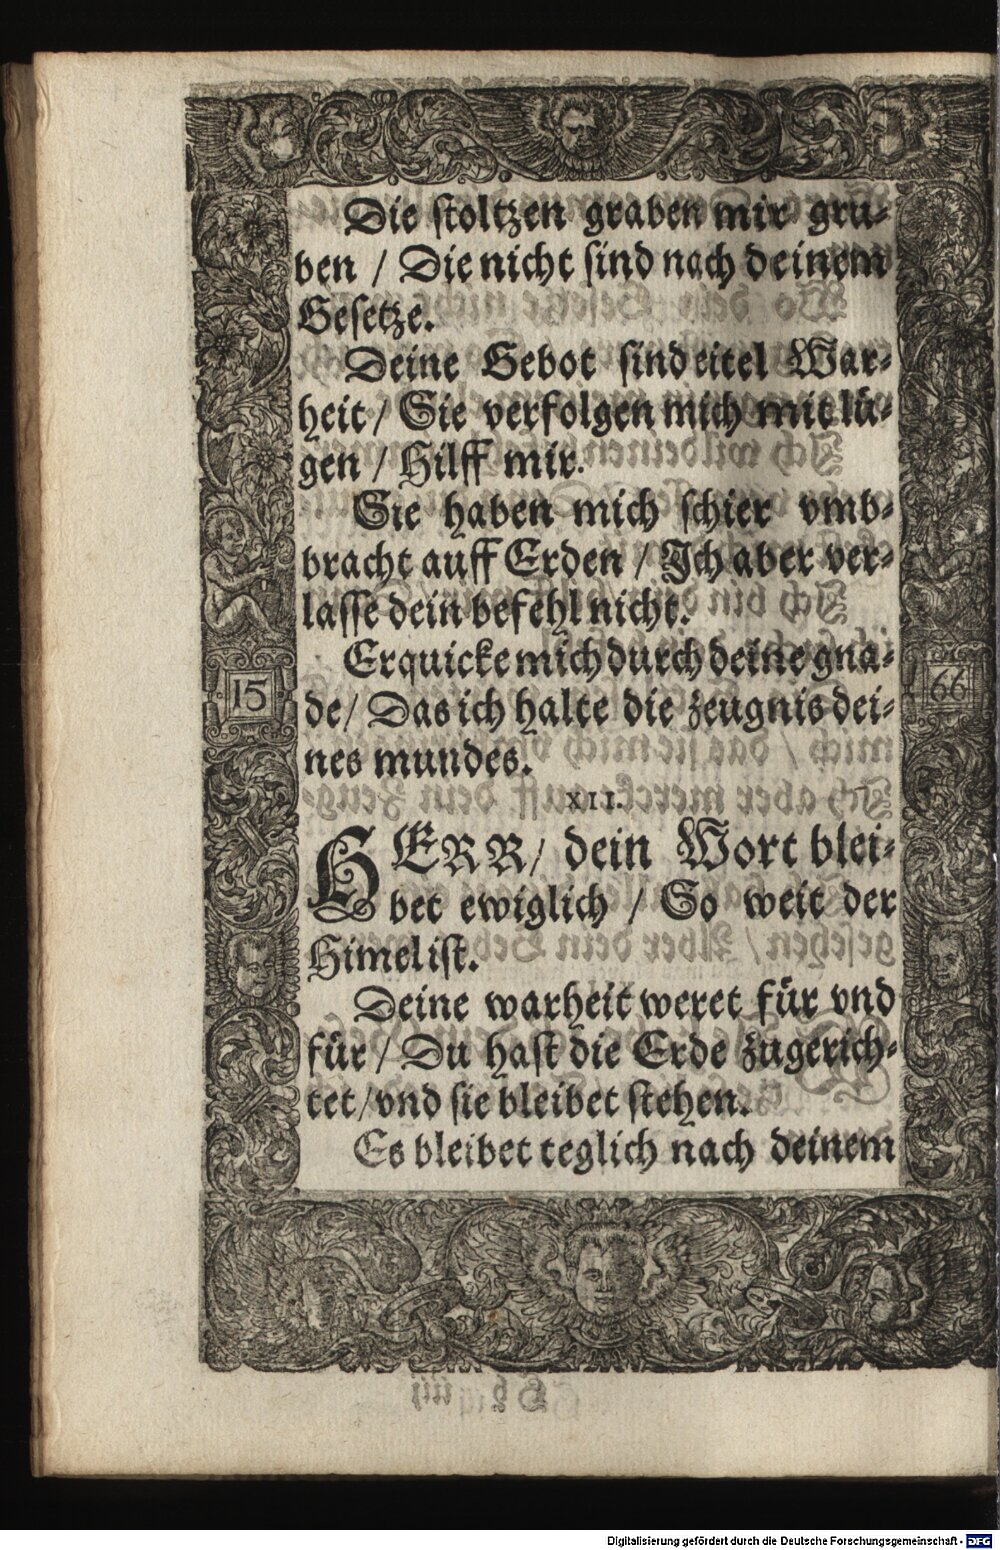 Die stoltzen graben mir gru-
ben / Die nicht sind nach deinem
Gesetze.
Deine Gebot sind eitel War-
heit / Sie verfolgen mich mit lü-
gen / Hilff mir.
Sie haben mich schier vmb-
bracht auff Erden / Ich aber ver-
lasse dein befehl nicht.
Erquicke mich durch deine gna-
de / Das ich halte die zeugnis dei-
nes mundes.
15
66
XII.
HERR / dein Wort blei-
bet ewiglich / So weit der
Himel ist.
Deine warheit weret für vnd
für / Du hast die Erde zugerich-
tet / vnd sie bleibet stehen.
Es bleibet teglich nach deinem
Digitalisierung gefördert durch die Deutsche Forschungsgemeinschaft - DFG